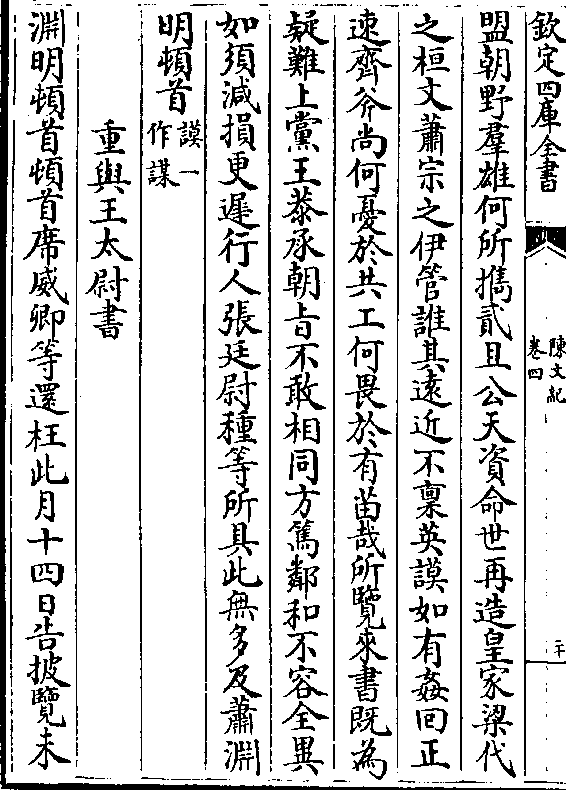 欽定四庫全書
陳文紀
卷四
二十
盟朝野羣雄何所攜貳且公天資命世再造皇家梁代
之桓文蕭宗之伊管誰其遠近不稟英謨如有姦回正
速齊斧尚何憂於共工何畏於有苗哉所覽來書既為
疑難上黨王恭承朝旨不敢相同方篤鄰和不容全異
如須減損更遲行人張廷尉種等所具此無多及蕭淵
明頓首謨一作謀
重與王太尉書
淵明頓首頓首席威卿等還枉此月十四日告披覽未